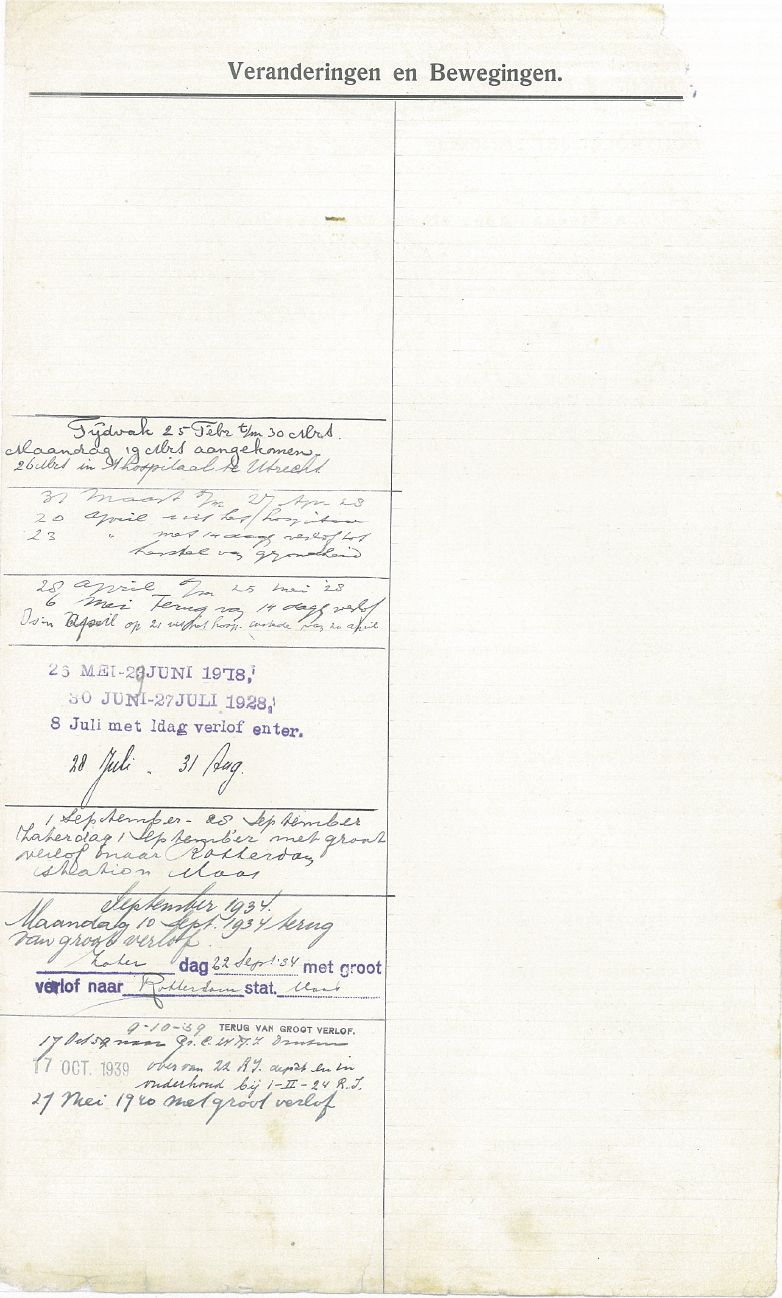 Veranderingen en Bewegingen.
Tijdvak 25 Febr t/m 30 Mrt.
Maandag 19 Mrt aangekomen.
26 Mrt in hospitaal te Utrecht
31 Maart t/m 27 Apr 28
20 april uit het hospitaal
23 " met 14 daags verlof tot
herstel van gezondheid
28 april t/m 25 mei '28
6 Mei Terug van 14 daags verlof
april op 21 uit het hosp. 20 april
26 MEI-29 JUNI 1978,
30 JUNI-27 JULI 1928,
8 Juli met 1dag verlof enter.
28 Juli - 31 Aug.
1 September - 28 September
Zaterdag 1 September met groot
verlof naar Rotterdam
station Maas
September 1934.
Maandag 10 Sept. 1934 terug
van groot verlof.
Zater dag 22 Sept. 34 met groot
verlof naar Rotterdam stat. Maas
9-10-39 TERUG VAN GROOT VERLOF.
17 Oct 39 naar
17 OCT. 1939 over van 22 R.I. depôt en in
onderhoud bij 1-II-24 R.I.
27 Mei 1940 met groot verlof